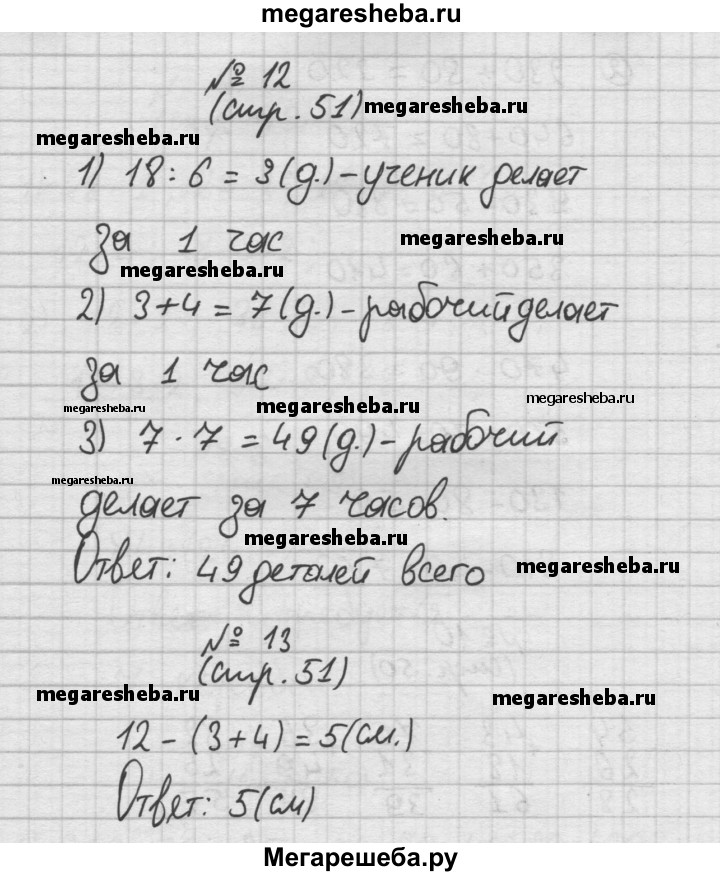 megaresheba.ru
№ 12
(стр. 51) megaresheba.ru
megaresheba.ru
1) 18 : 6 = 3 (д.) – ученик делает
за 1 час megaresheba.ru
megaresheba.ru
2) 3 + 4 = 7 (д.) – рабочий делает
за 1 час megaresheba.ru
megaresheba.ru megaresheba.ru
3) 7 · 7 = 49 (д.) – рабочий
megaresheba.ru
делает за 7 часов.
megaresheba.ru
Ответ: 49 деталей всего megaresheba.ru
№ 13
(стр. 51)
megaresheba.ru megaresheba.ru
12 – (3 + 4) = 5 (см.)
Ответ: 5 (см)
Мегарешеба.ру